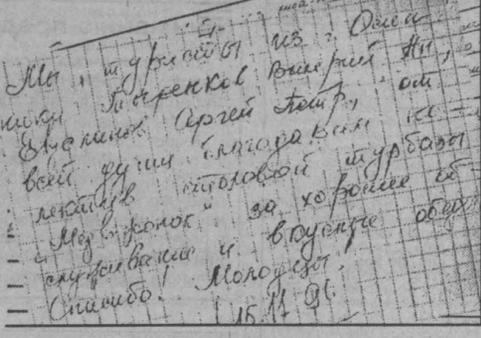 Мы, туристы из г. Омска
ники Тыренков Валерий Ни,
Сергей Петр, от
всей души благодарим кол-
лектив столовой турбазы
"Медвежонок" за хорошее об-
служивание и вкусные обеды
Спасибо! Молодцы!
15.11 91.